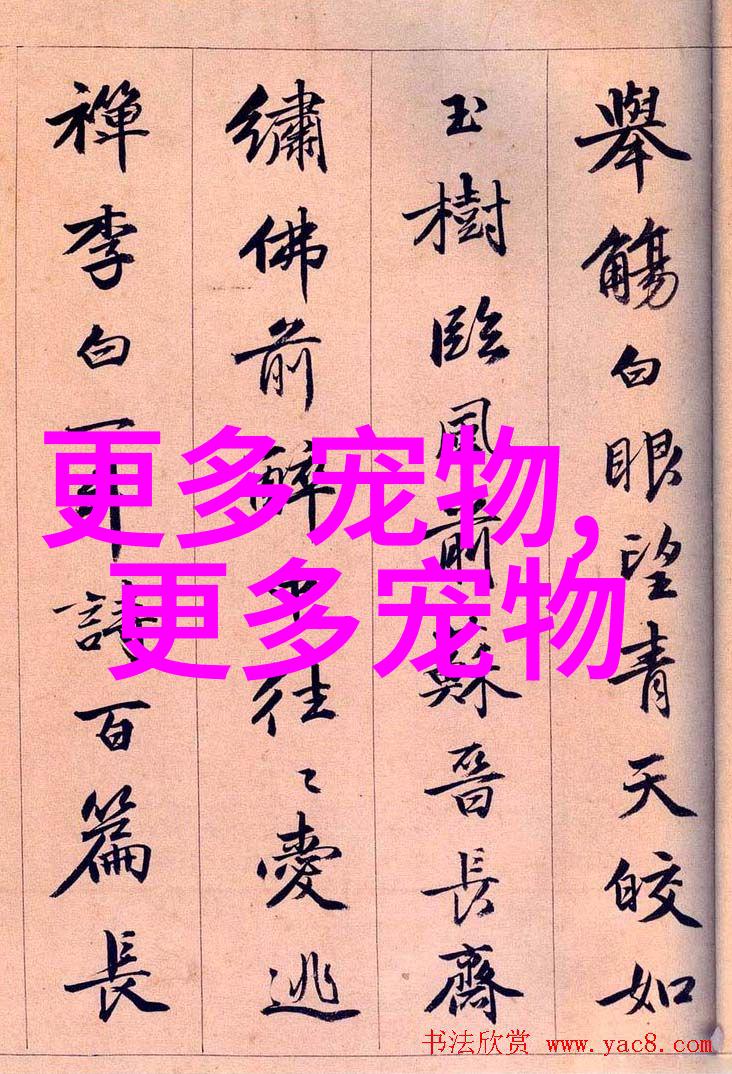 舉觴白眼望青天皎如
玉樹臨風前蘇晉長齋
繡佛前醉中往〻愛逃
禪李白一斗詩百篇長
更多宠物,
更多宠物
书法欣赏 www.yac8.com